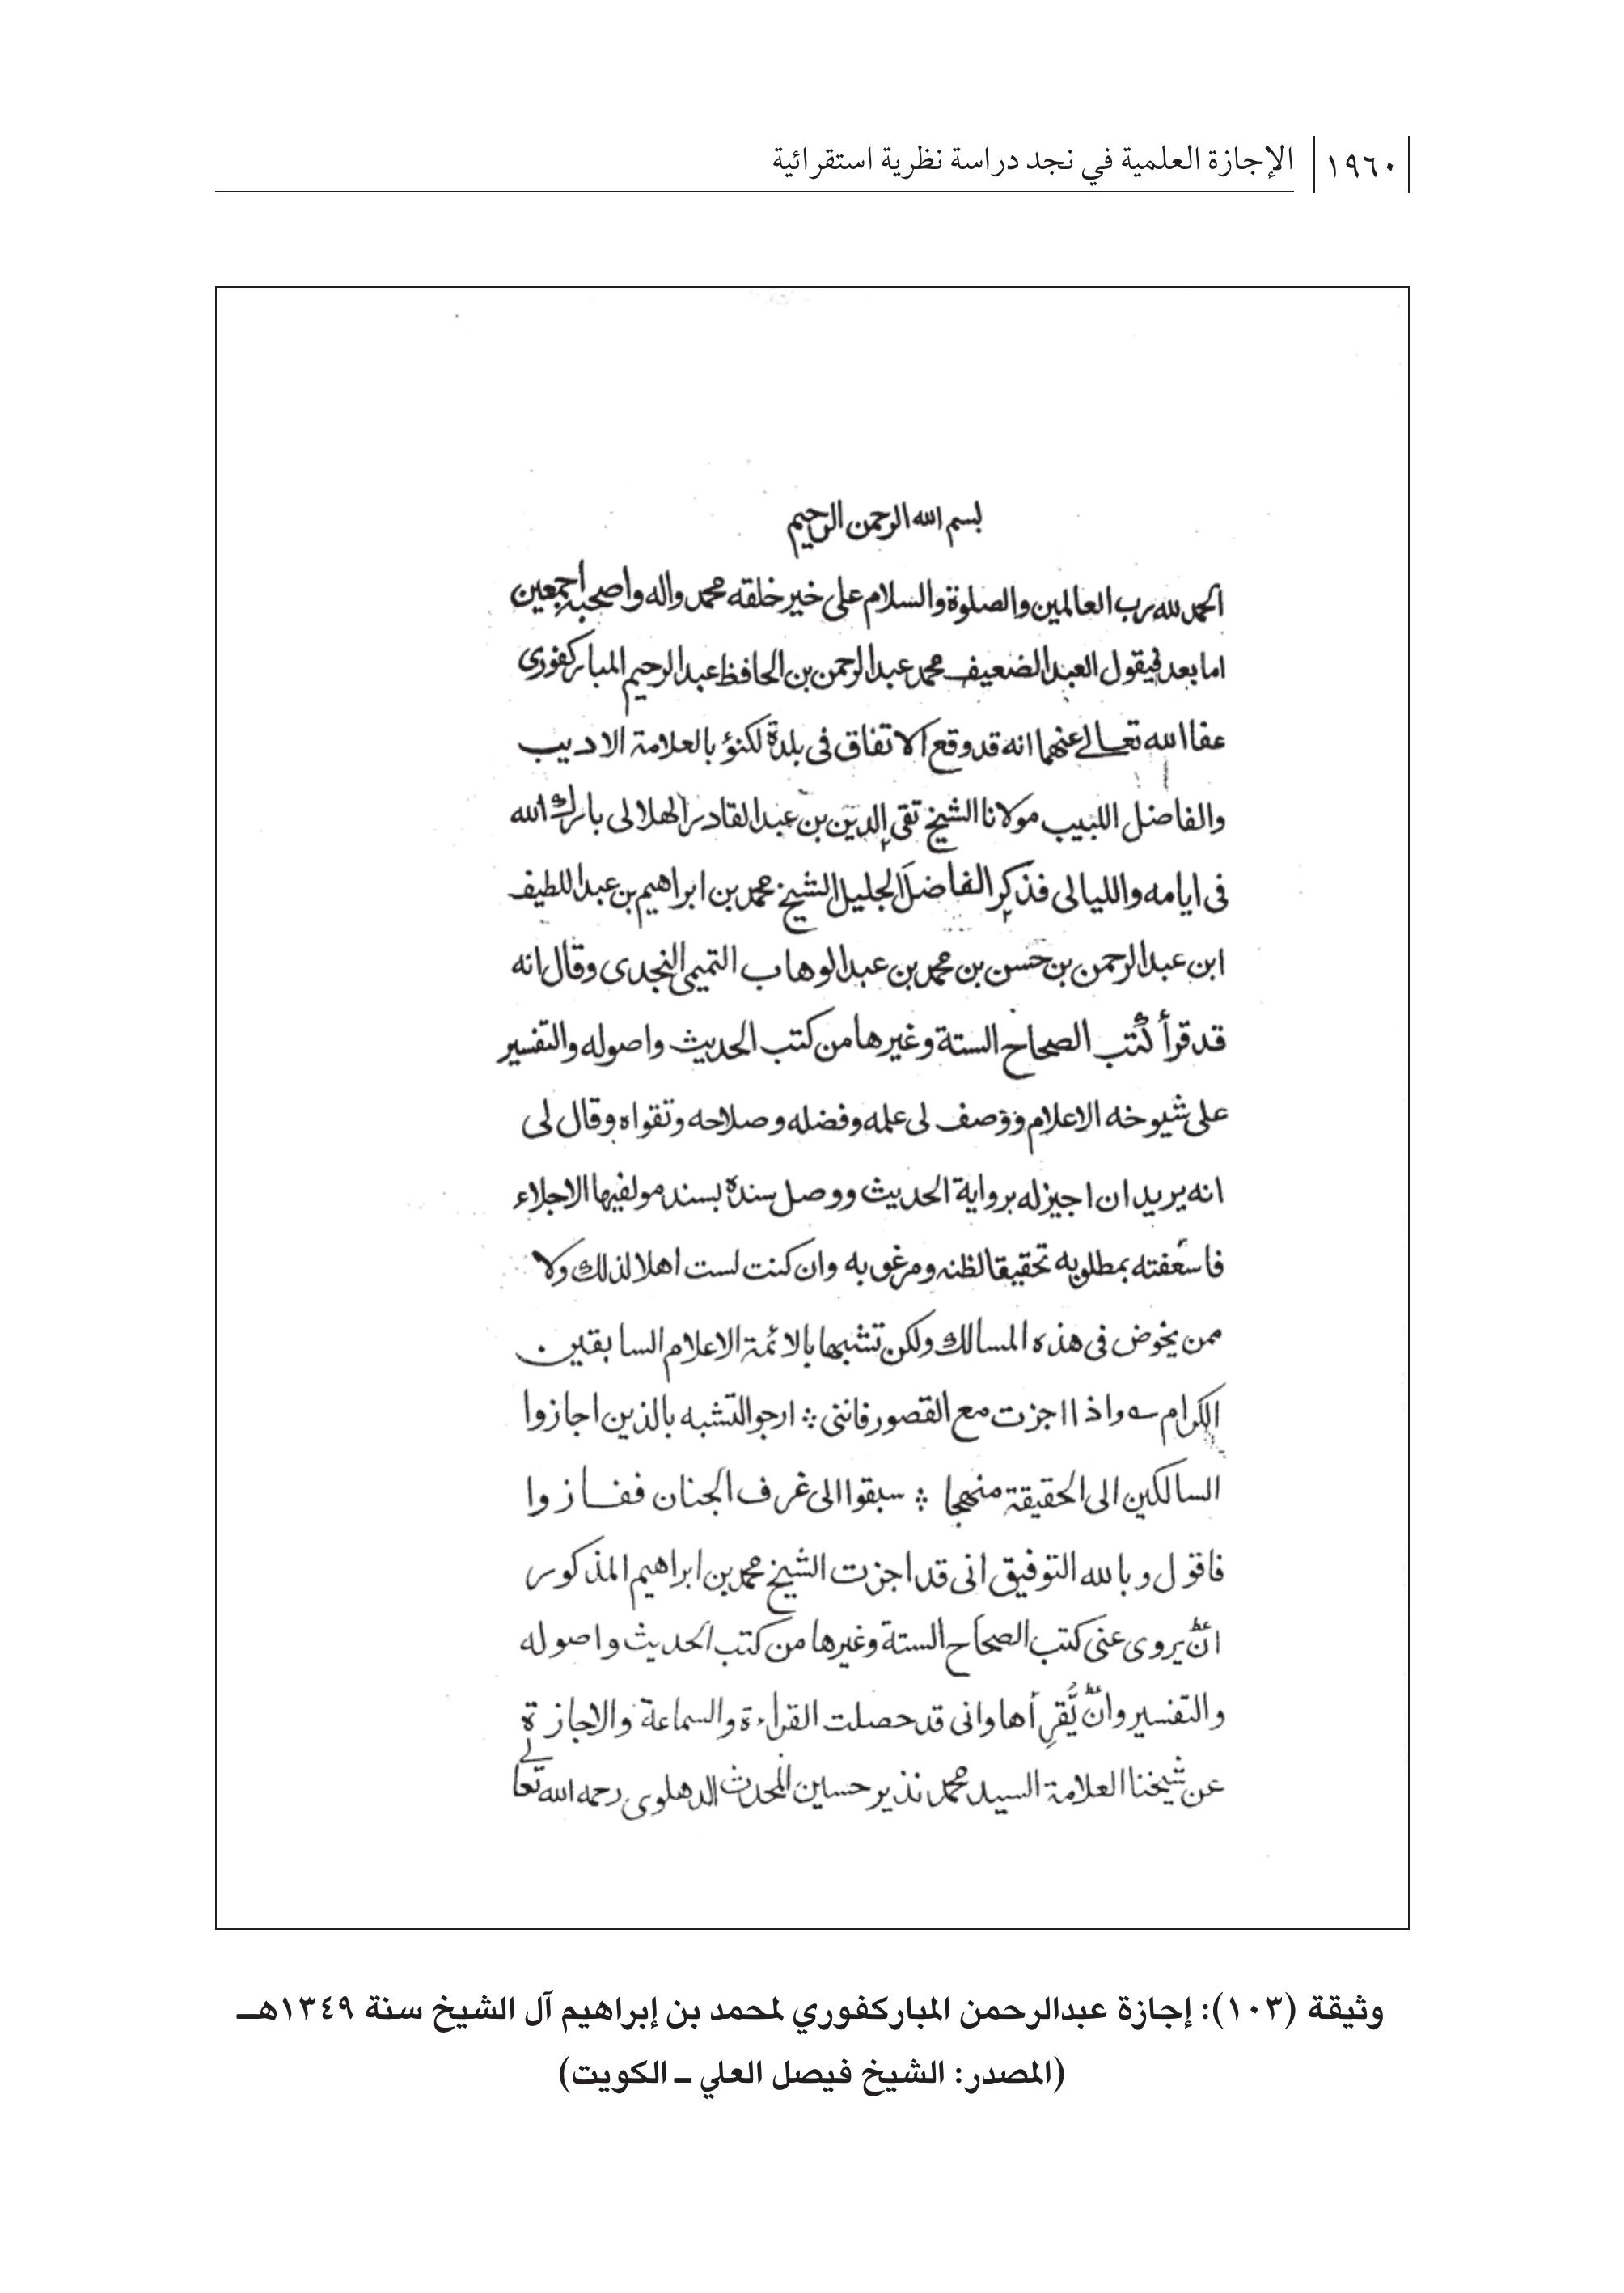 ١٩٦٠ الإجازة العلمية في نجد دراسة نظرية استقرائية
بسم الله الرحمن الرحيم
الحمد لله رب العالمين والصلوة والسلام على خير خلقه محمد واله واصحبه اجمعين
اما بعد فيقول العبد الضعيف محمد عبد الرحمن بن الحافظ عبد الرحيم المباركفورى
عفا الله تعالى عنهما انه قد وقع الاتفاق فى بلدة لكنؤ بالعلامة الاديب
والفاضل اللبيب مولانا الشيخ تقى الدين بن عبد القادر الهلالى بارك الله
فى ايامه والليالى فذكر الفاضل الجليل الشيخ محمد بن ابراهيم بن عبد اللطيف
ابن عبد الرحمن بن حسن بن محمد بن عبد الوهاب التميمى النجدى وقال انه
قد قرأ كتب الصحاح الستة وغيرها من كتب الحديث واصوله والتفسير
على شيوخه الاعلام ووصف لى علمه وفضله وصلاحه وتقواه وقال لى
انه يريد ان اجيز له برواية الحديث ووصل سنده بسند مولفيها الاجلاء
فاسعفته بمطلوبه تحقيقا لظنه ومرغوبه وان كنت لست اهلا لذلك ولا
ممن يخوض فى هذه المسالك ولكن تشبها بالائمة الاعلام السابقين
الكرام ــه واذا اجزت مع القصور فاننى ؞ ارجو التشبه بالذين اجازوا
السالكين الى الحقيقة منهجا ؞ سبقوا الى غرف الجنان ففازوا
فاقول وبالله التوفيق انى قد اجزت الشيخ محمد بن ابراهيم المذكور
انّ يروى عنى كتب الصحاح الستة وغيرها من كتب الحديث واصوله
والتفسير وانّ يُّقرِأها وانى قد حصلت القراءة والسماعة والاجازة
عن شيخنا العلامة السيد محمد نذير حسين المحدث الدهلوى رحمه الله تعالى
وثيقة (١٠٣): إجازة عبدالرحمن المباركفوري لمحمد بن إبراهيم آل الشيخ سنة ١٣٤٩هـ
(المصدر: الشيخ فيصل العلي ـ الكويت)